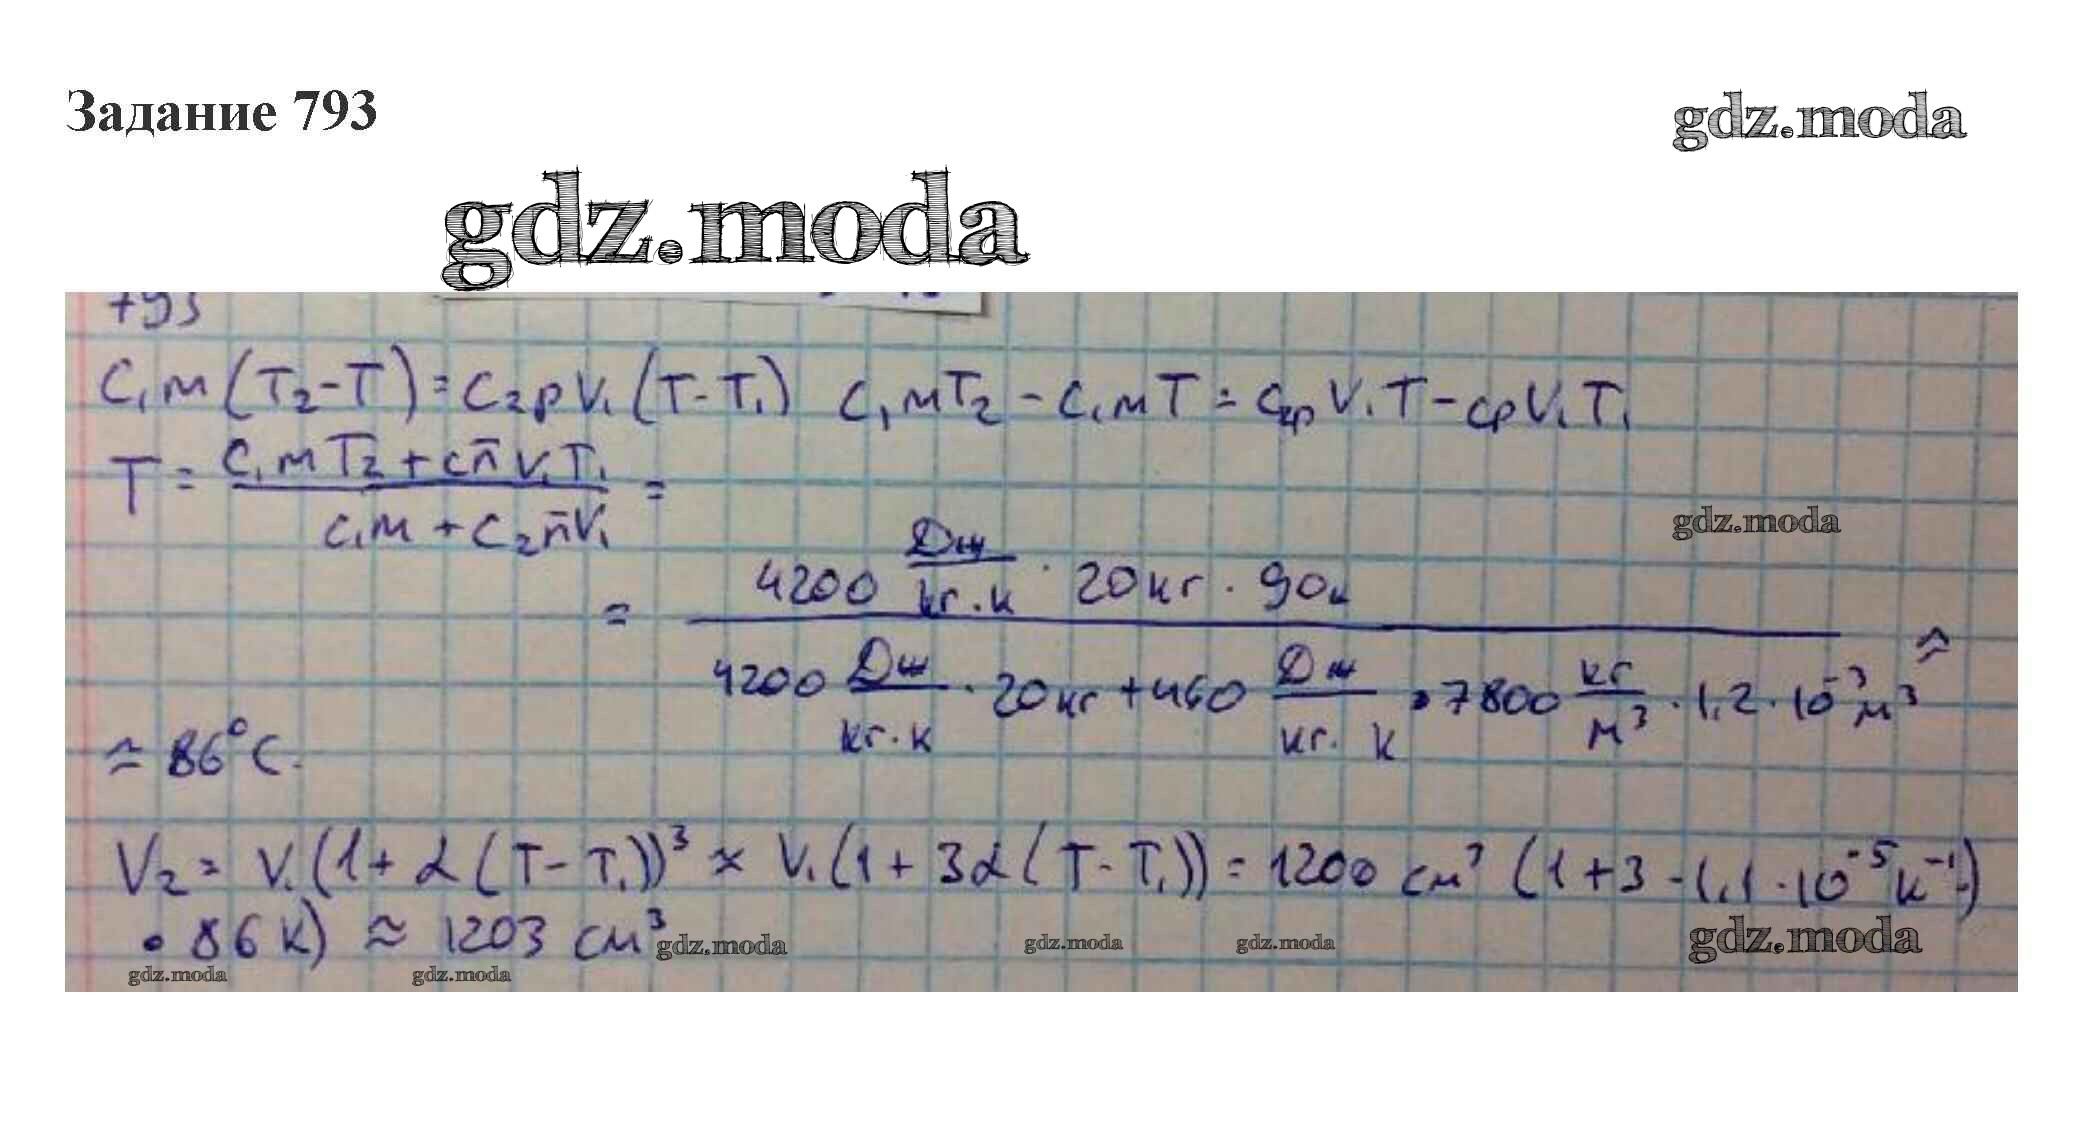 Задание 793
gdz.moda
gdz.moda
793
C₁м(T₂-T)=C₂ρV₁(T-T₁) C₁мT₂-C₁мT=C₂ρV₁T-CρV₁T₁
T = C₁мT₂+Cп̄V₁T₁ / C₁м+C₂п̄V₁ =
gdz.moda
= 4200 Дж/кг·К · 20 кг · 90к / 4200 Дж/кг·К · 20 кг + 460 Дж/кг·К · 7800 кг/м³ · 1,2 · 10⁻³ м³ ≈
≈ 86°C.
V₂ = V₁(1+α(T-T₁))³ ≈ V₁(1+3α(T-T₁)) = 1200 см³ (1+3·1,1·10⁻⁵ К⁻¹·)
· 86 К) ≈ 1203 см³
gdz.moda
gdz.moda
gdz.moda
gdz.moda
gdz.moda
gdz.moda